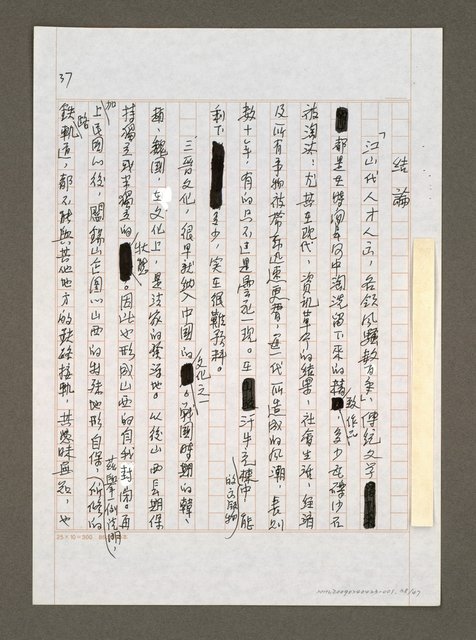 結論
「江山代有才人出，各領風騷數百年」傳統文學
都是在時間長河中淘洗留下來的精緻作品，多少在礫沙石
被淘汰。尤其在現代，資訊革命的結果，社會生活、經濟
及所有事物被帶動迅速更替，這一代所造成的風潮，長則
數十年，有的只不過是曇花一現。在汗牛充棟中，能
剩下多少，實在很難預料。
三晉文化，很早就納入中國的文化之。戰國時期的韓、
趙、魏國，在文化上，是法家的發源地。以後山西長期保
持獨立或半獨立的狀態。因此也形成山西的自我封閉。再
加上民國以後，閻錫山企圖以山西的特殊地形自保，所修的
鐵路軌道，都不能與其他地方的鐵路接軌，其曖昧無知，也
茲舉例說明，
的文學作品
37
25×10=500